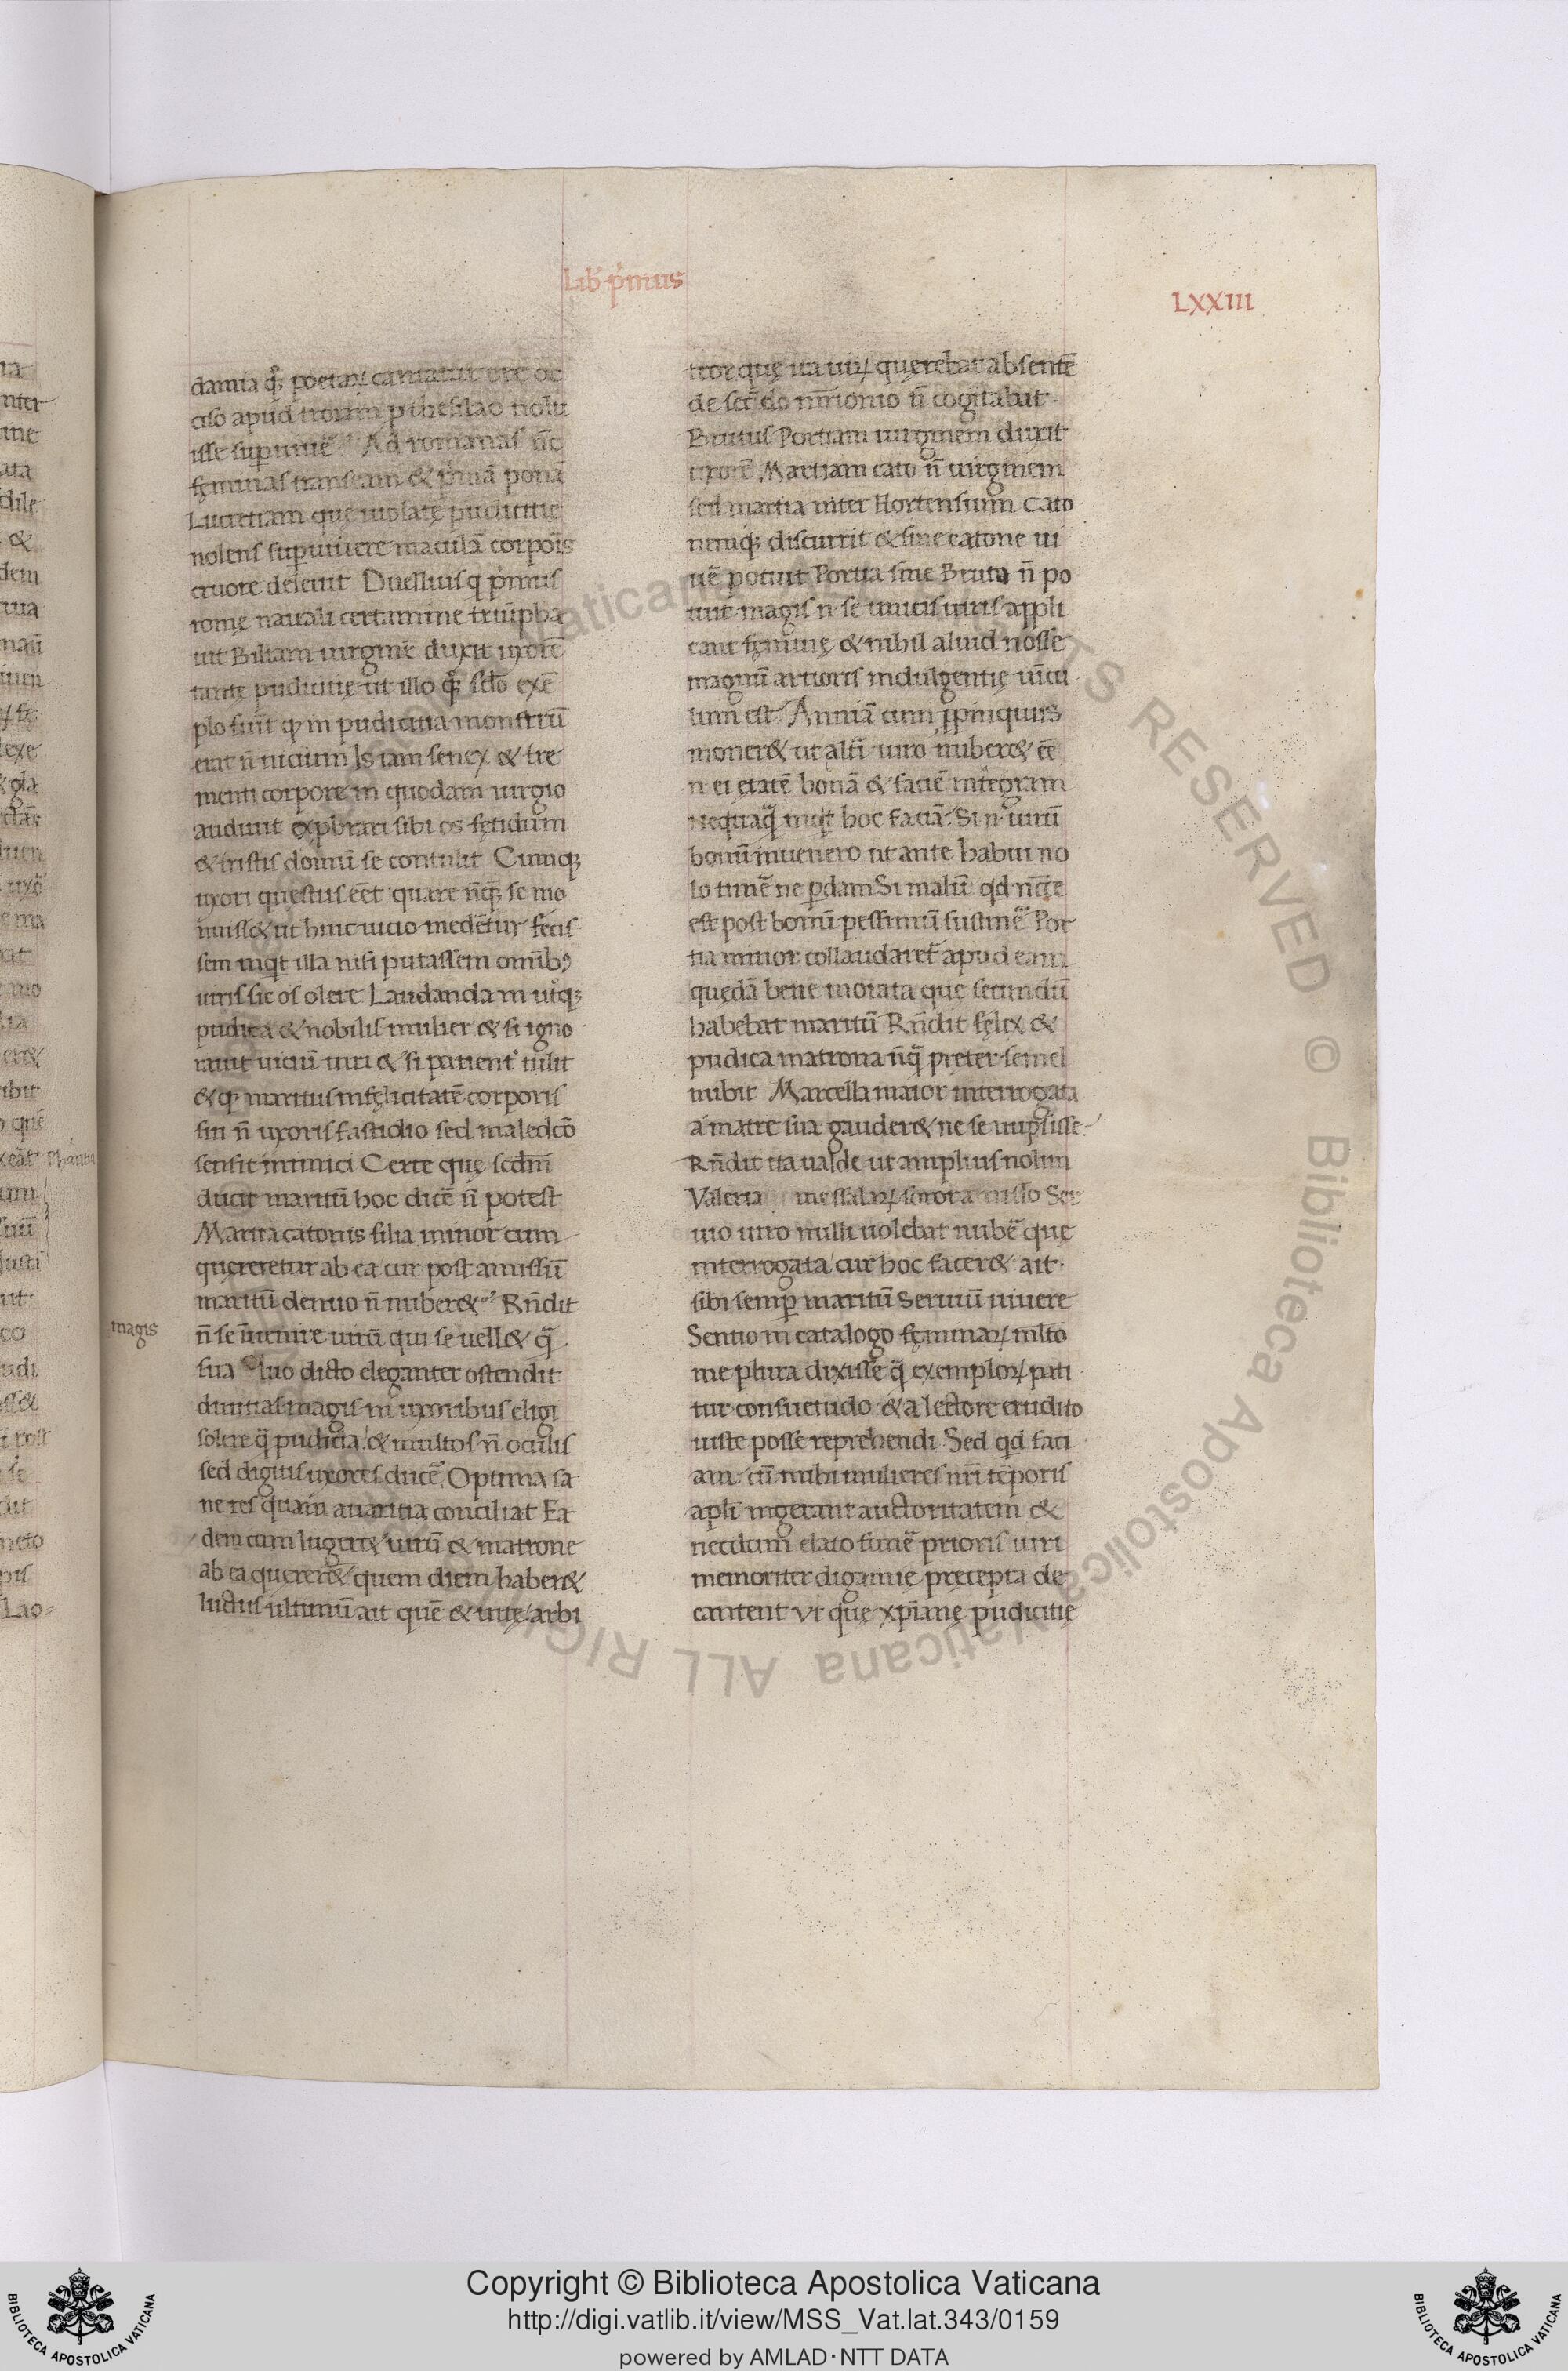 Lib' p'mus
LXXIII
damia q̊ꝫ poetaꝝ cantatur ore oc
ciso apud troiam ptheſilao nolu
iſſe ſupuiuẽ Ad romanaſ ñc
fęminaſ tranſeam & p'mã ponã
Lucretiam que uiolatę pudicitię
nolenſ ſupuiuere maculã corpoĩs
cruore deleuit Duelliuſ q p'muſ
romę nauali certamine triũpha
uit Biliam uirginẽ duxit uxorẽ
tantę pudicitię ut illo q̊ꝫ sclo exẽ
plo fuit̃ qͥ in pudicitia monſtrũ
erat ñ uicium Is iam ſenex & tre
menti corpore in quodam iurgio
audiuit exprbrari ſibi os fętidum
& triſtiſ domũ ſe contulit Cumqꝫ
uxori queſtuſ eẽt quare ñq̃ꝫ ſe mo
nuiſſ& ut huic uicio medẽtur feciſ
ſem inqͥt illa niſi putaſſem omĩbꝰ
uiriſ ſic oſ olere Laudanda in ut̊qꝫ
pudica & nobiliſ mulier & ſi igno
rauit uiciũ uiri & ſi patient' tulit
& qͥ marituſ infęlicitatẽ corporiſ
ſui ñ uxoriſ faſtidio ſed maledcõ
ſenſit inimici Certe quę ſcdm̃
ducit maritũ hoc dicẽ ñ poteſt
Martia catoniſ filia minor cum
quereretur ab ea cur poſt amiſſũ
maritũ denuo ñ nuber& Rñdit
magis
ñ ſe ĩuenire uirũ qui ſe uell& q̃
ſua Quo dicto eleganter oſtendit
diuitiaſ magiſ in uxoribuſ eligi
ſolere q̃ pudicia & multoſ ñ oculiſ
ſed digitiſ uxoreſ ducẽ Optima ſa
ne reſ quam auaritia conciliat Ea
dem cum luger& uirũ & matrone
ab ea querer& quem diem haber&
luctuſ ultimũ ait quẽ & uitę arbi
tror quę ita uirꝝ querebat abſentẽ
de ſecũdo mr̃ionio ñ cogitabat
Brutuſ Portiam uirginem duxit
uxorẽ Martiam cato ñ uirginem
ſed martia inter Hortenſium Cato
nemqꝫ diſcurrit & ſine catone ui
uẽ potuit Portia ſine Bruto ñ po
tuit magiſ n̄ ſe uniciſ uiriſ appli
cant fęminę & nihil aliud noſſe
magnũ artioriſ indulgentię uĩcu
lum eſt Anniã cum ꝓpinquuſ
moner& ut altĩ uiro nuber& eẽ
n̄ ei ętatẽ bonã & faciẽ integram
Nequaq̃ inqͥt hoc faciã Si n̄ uirũ
bonũ inuenero ut ante habui no
lo timẽ ne pdam Si malũ qd nc̃e
eſt poſt bonũ peſſimũ ſuſtinẽ Por
tia minor collaudaret̃ apud eam
quędã bene morata que ſecundũ
habebat maritũ Rñdit fęlix &
pudica matrona ñq̃ preter ſemel
nubit Marcella maior interrogata
a matre ſua gauder& ne ſe nupſiſſe
Rñdit ita ualde ut ampliuſ nolim
Valeria meſſalaꝝ ſoror amiſſo Ser
uio uiro nulli uolebat nubẽ quę
interrogata cur hoc facer& ait
ſibi ſemp maritũ Seruiũ uiuere
Sentio in catalogo fęminaꝝ ml̃to
me plura dixiſſe q̃ exemploꝝ pati
tur conſuetudo & a lectore erudito
iuſte poſſe reprehendi Sed qd faci
am cũ mihi mulieres nr̃i tẽporiſ
apłi ingerant auctoritatem &
necdum elato funẽ prioriſ uiri
memoriter digamię pręcepta de
cantent Vt quę xp̃ianę pudicitię